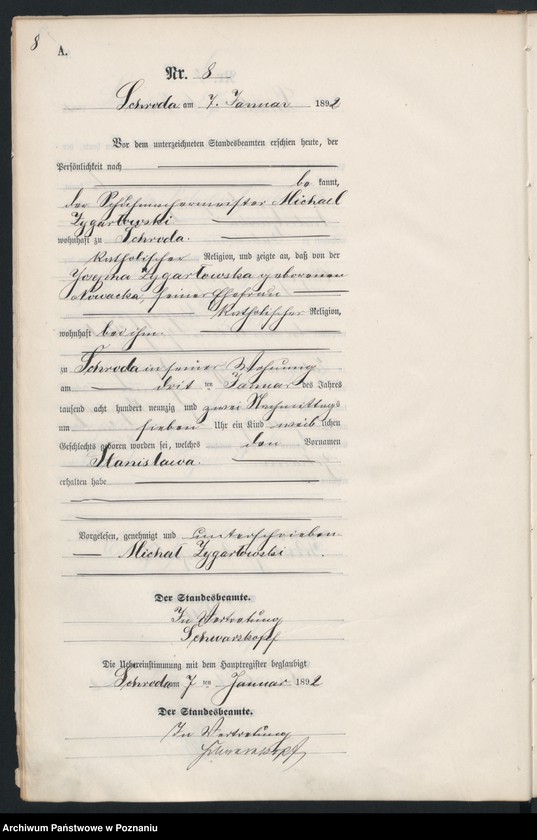 8
A.
Nr. 8
Schroda am 7. Januar 1892
Vor dem unterzeichneten Standesbeamten erschien heute, der
Persönlichkeit nach
be kannt,
der Schuhmachermeister Michael
Zygarłowski
wohnhaft zu Schroda.
katholischer Religion, und zeigte an, daß von der
Josepha Zygarłowska geborenen
Nowacka, seiner Ehefrau
katholischer Religion,
wohnhaft bei ihm
zu Schroda in seiner Wohnung
am drit ten Januar des Jahres
tausend acht hundert neunzig und zwei Nachmittags
um sieben Uhr ein Kind weib lichen
Geschlechts geboren worden sei, welches den Vornamen
Stanisława.
erhalten habe
Vorgelesen, genehmigt und unterschrieben
Michał Zygarłowski.
Der Standesbeamte.
In Vertretung
Schwarzkopf
Die Uebereinstimmung mit dem Hauptregister beglaubigt
Schroda am 7 ten Januar 1892
Der Standesbeamte.
In Vertretung
Schwarzkopf
Archiwum Państwowe w Poznaniu